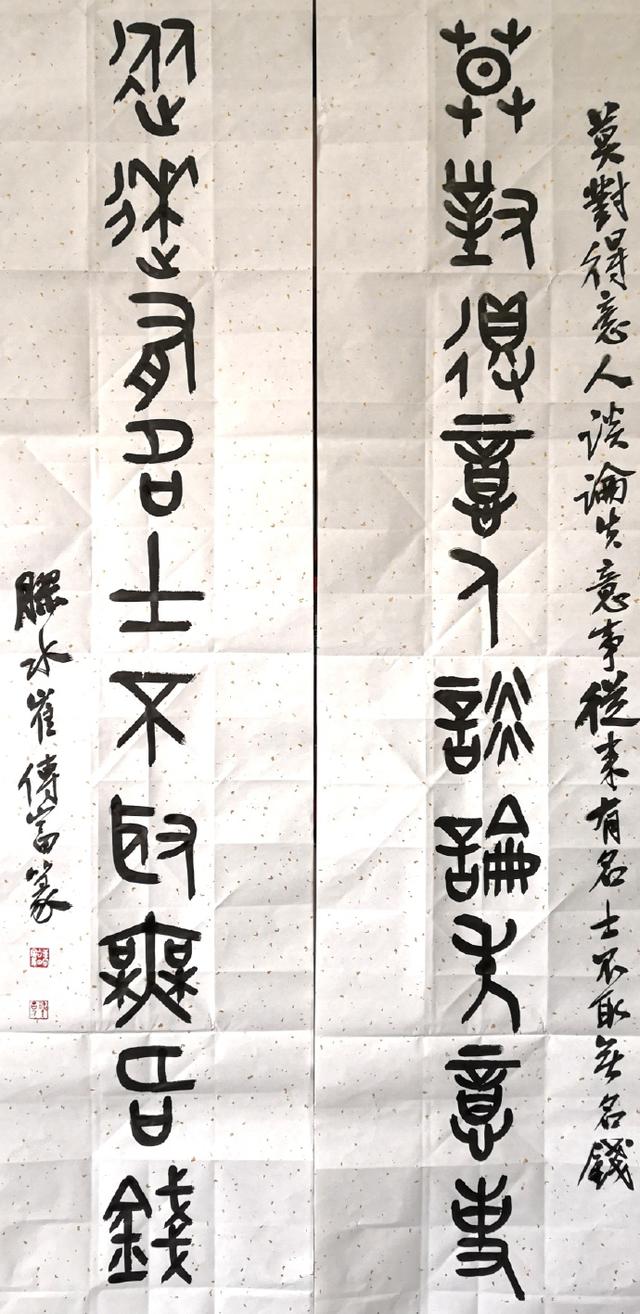 莫對得意人談論失意事從來有名士不取無名錢
莫對得意人談論失意事
從來有名士不取無名錢
膠水崔傳富篆